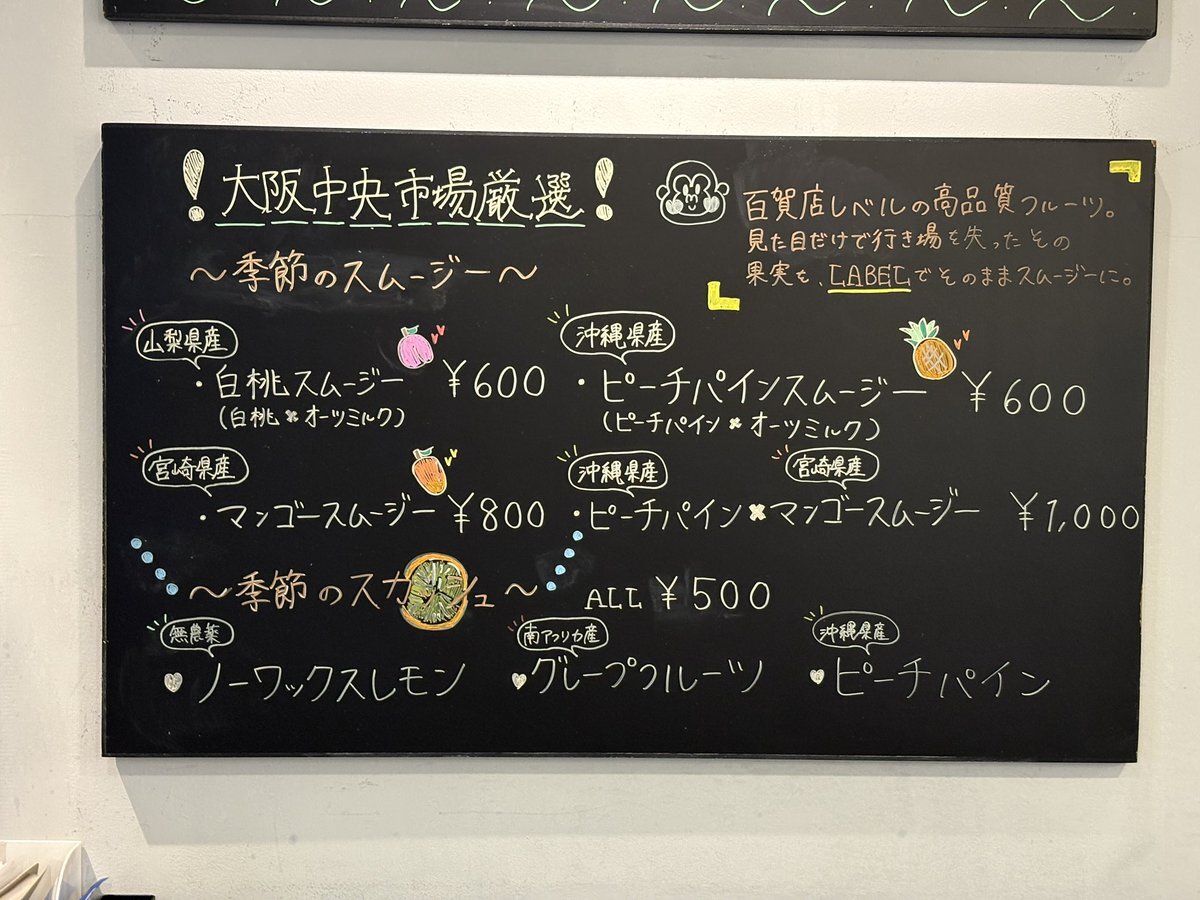 !大阪中央市場厳選!
百貨店レベルの高品質フルーツ。
見た目だけで行き場を失ったその
果実も、LABELでそのままスムージーに。
〜季節のスムージー〜
山梨県産
・白桃スムージー ¥600
(白桃×オーツミルク)
沖縄県産
・ピーチパインスムージー ¥600
(ピーチパイン×オーツミルク)
宮崎県産
・マンゴースムージー ¥800
沖縄県産 宮崎県産
・ピーチパイン×マンゴースムージー ¥1,000
〜季節のスカッシュ〜 ALL ¥500
無農薬
ノーワックスレモン
南アフリカ産
グレープフルーツ
沖縄県産
ピーチパイン